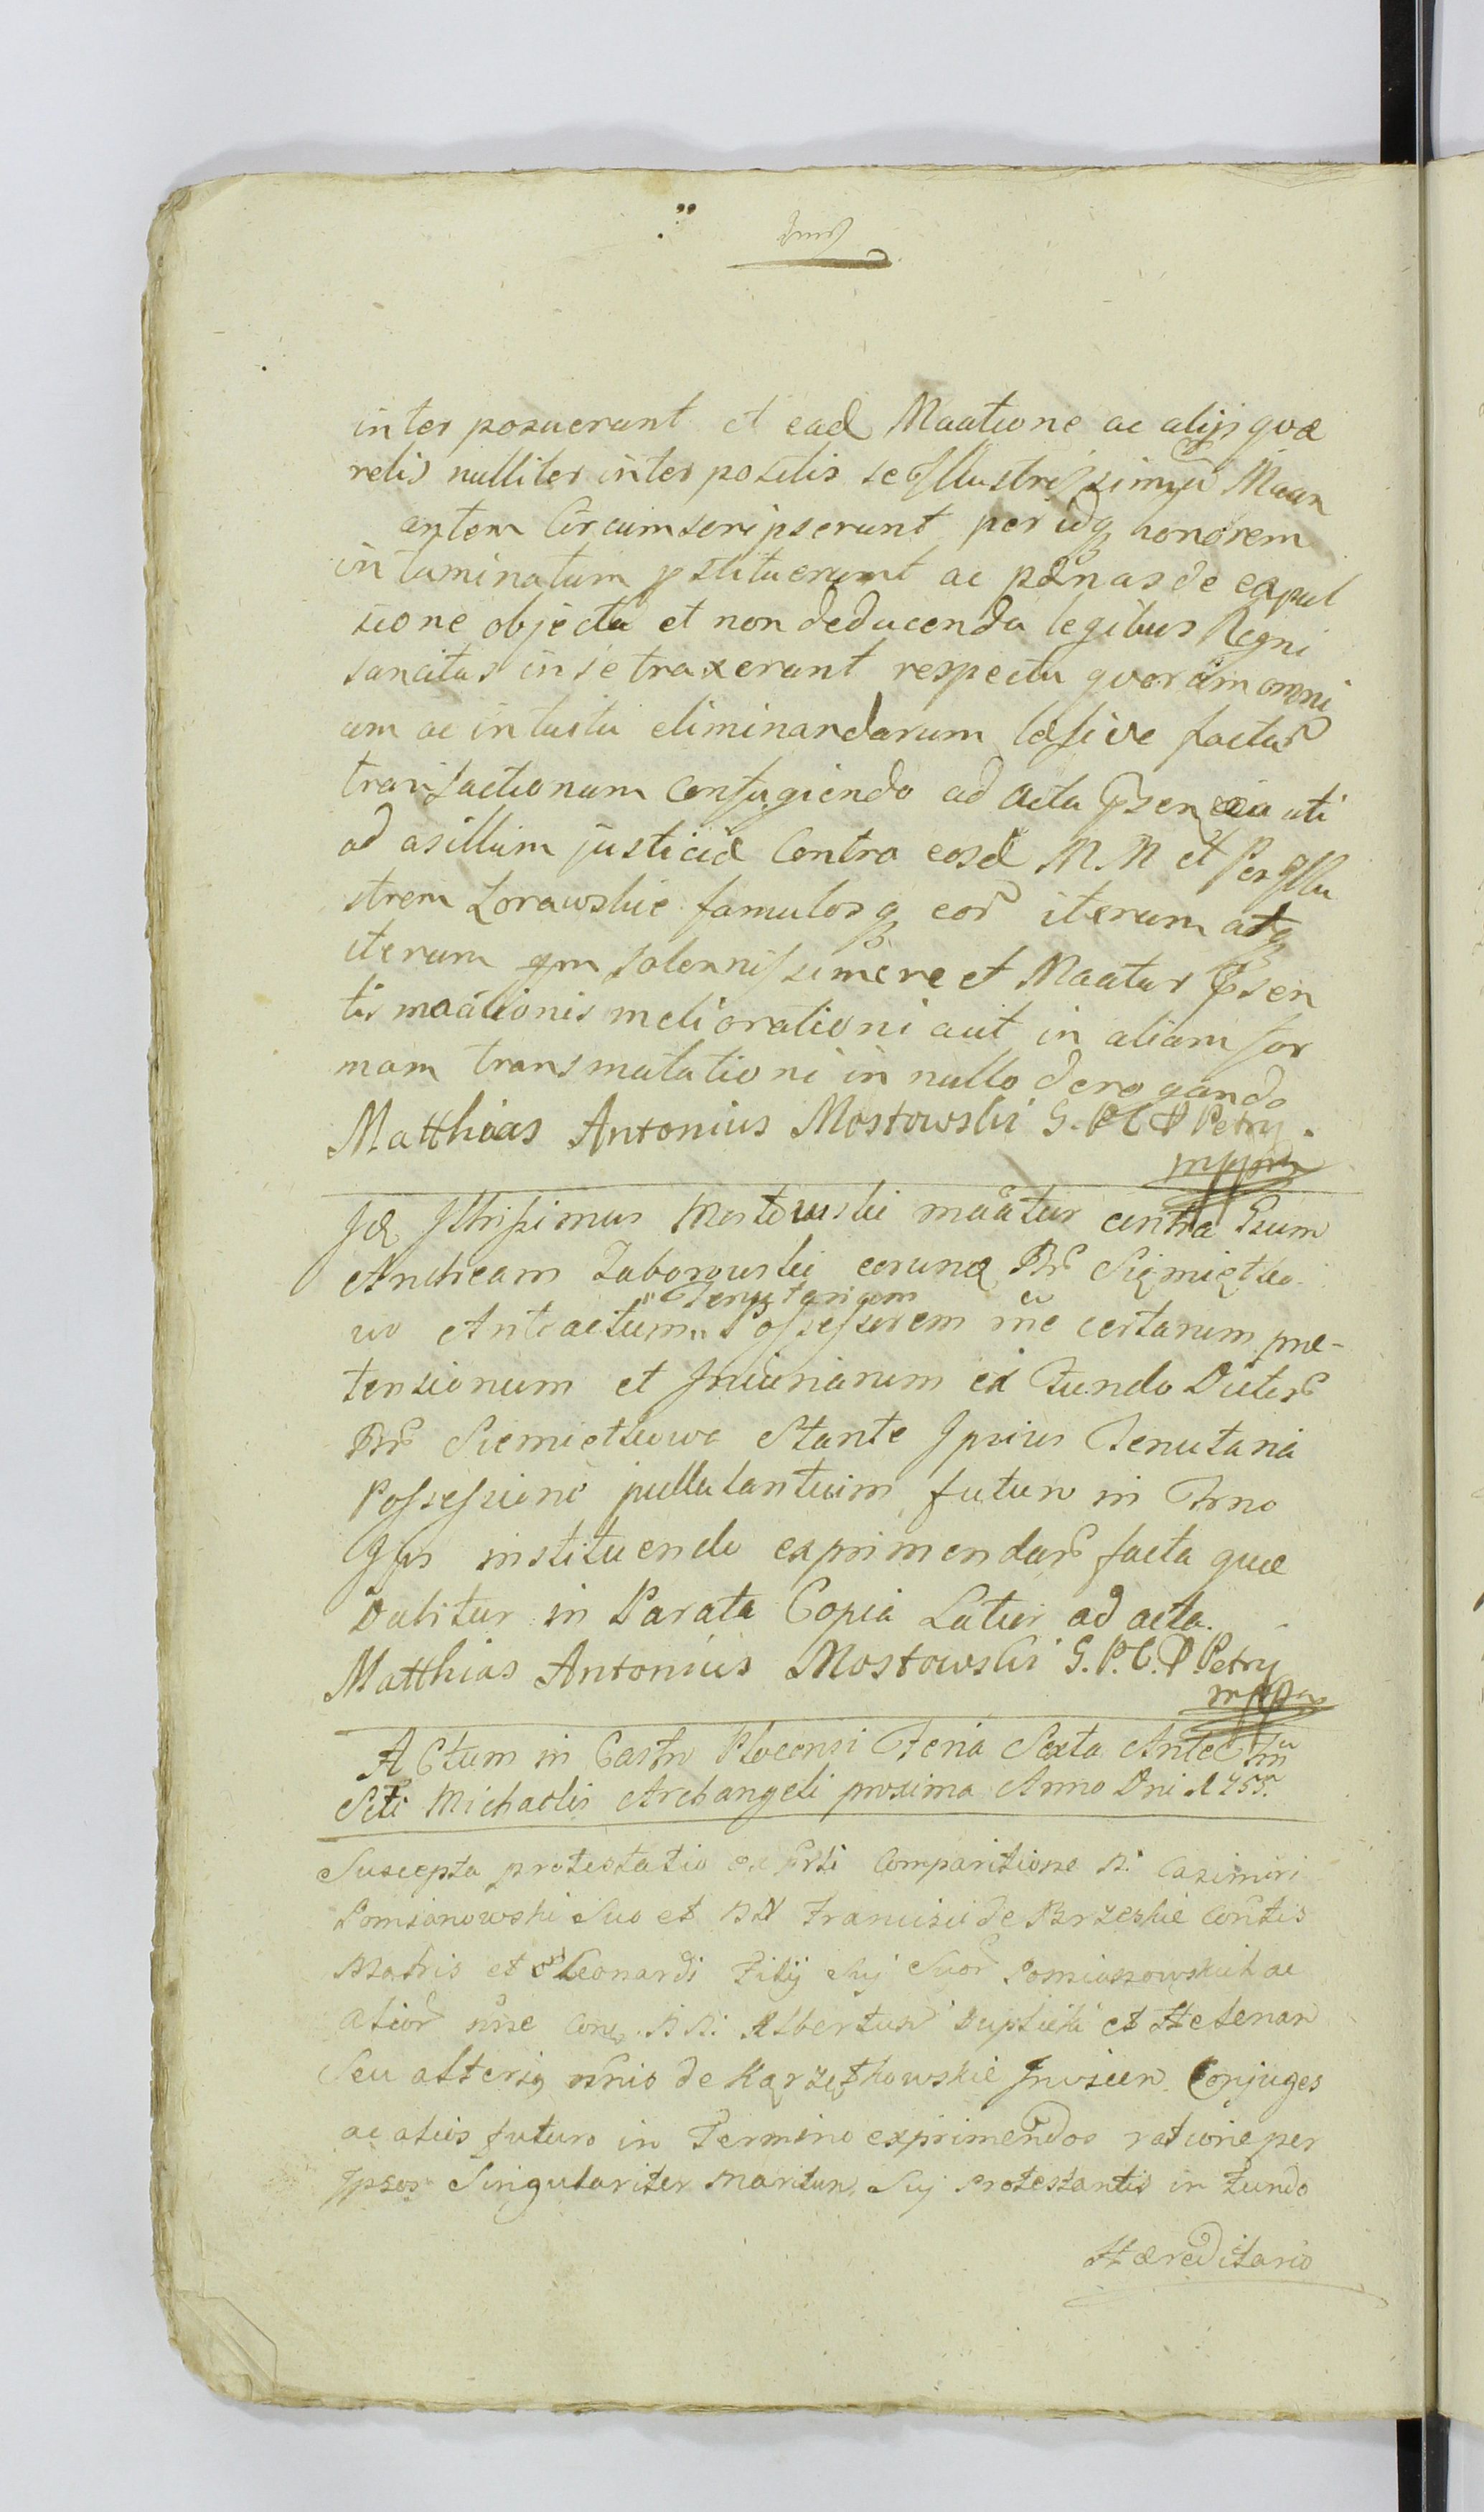 inter posuerunt et ead Maatione ac alijs quæ
relis nulliter inter positis se Illustrissimũ Maan
antem Circumscripserunt per idq honorem
intaminatum pstituerunt ac pænas de expul
sione objecta et non deducenda legibus Regni
sancitas in se traxerunt respectu quorum omni
um ac intuitu eliminandarum læsive factar
transactionum Confugiendo ad Acta Psen uti
ad asillum justiciæ Contra eosd M.M et Per Illu
strem Zorawskie famulosq eor iterum atq
iterum qm solennissime re et Maatur Psen
tis maationis meliorationi aut in aliam for
mam transmutationi in nullo derogando
Matthias Antonius Mostowski S. P. C. P Petry.
mppa
Id Illrissimus Mostowski maatur contra Gsum
Andream Zaborowski eorund Br Siemiętko
"Tenutarium
wo Anteactum" Possessorem rne certarum præ-
tensionum et Iniuriarum ex Fundo Dictor
Br Siemiętkowo Stante Ipsius Tenutaria
Possessione pullulantium futuro in Trno
Ipsi instituendo exprimendar facta quæ
Dabitur in Parata Copia Latius ad acta.
Matthias Antonius Mostowski S. P. C. P Petry
mppa
Actum in Castro Plocensi Feria Sexta Ante Ftum
Scti Michaelis Archangeli proxima Anno Dni 1755.
Suscepta protestatio ex Prsti Comparitione N. Casimiri
Pomianowski Suo et NN Franciscæ de Brzeskie Contis
Matris et Leonardi Filij Sui Suor Pomianowskich ac
alior nne Cone NN. Albertum Duplicki et Helenam
Seu alterius nnis de Karzętkowskie Invicem Conjuges
ac alios futuro in Termino exprimendos ratione per
Ipsos Singulariter Maritum Sui Protestantis in Fundo
Hæreditario